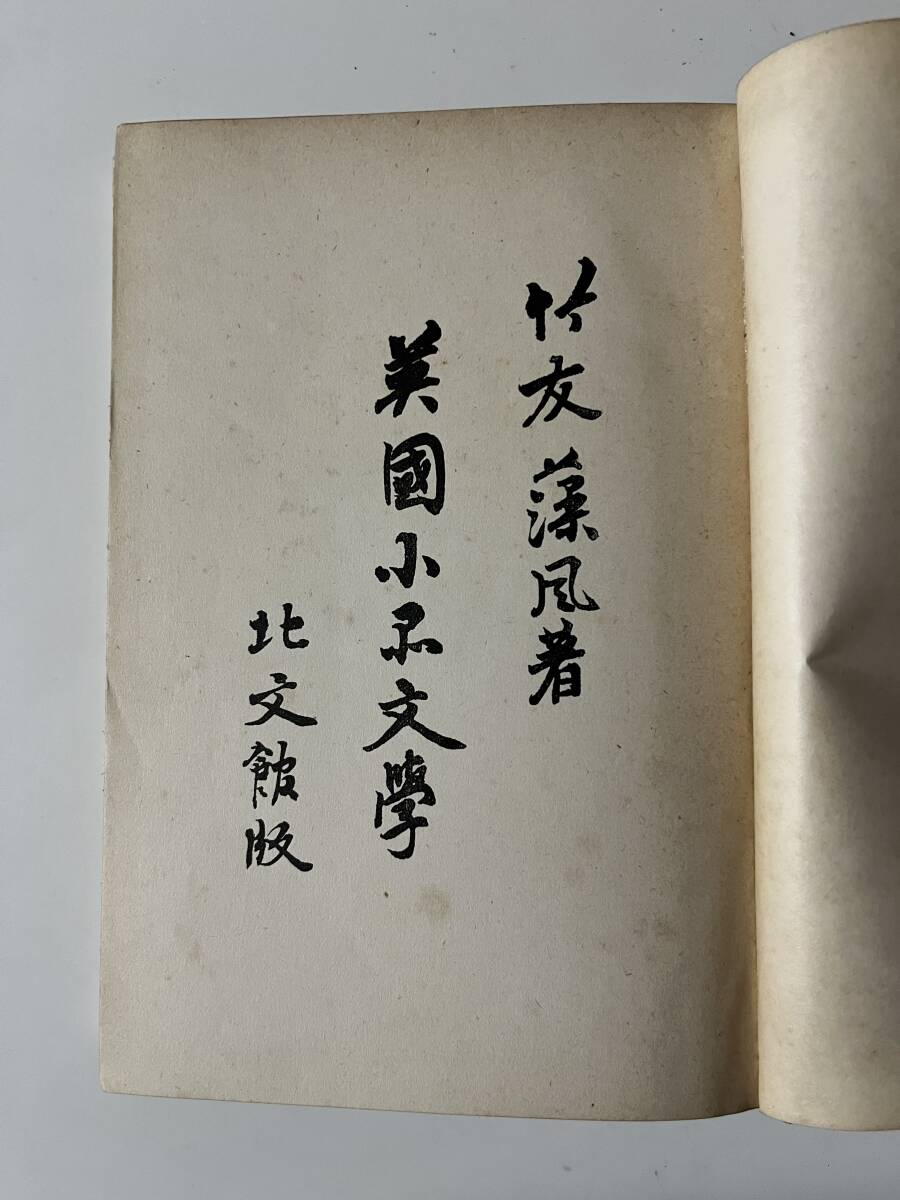 竹友藻風著
英國小品文學
北文館版